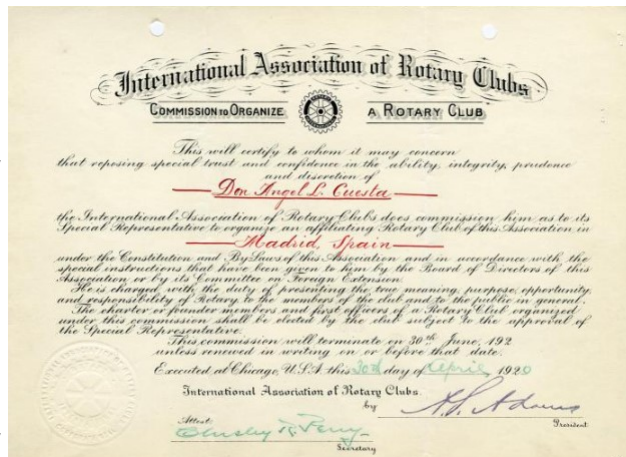 International Association of Rotary Clubs
COMMISSION TO ORGANIZE A ROTARY CLUB
This will certify to whom it may concern
that reposing special trust and confidence in the ability, integrity, prudence
and discretion of
Don Angel L. Cuesta
the International Association of Rotary Clubs does commission him as to its
Special Representative to organize an affiliating Rotary Club of this Association in
Madrid, Spain
under the Constitution and By Laws of this Association and in accordance with the
special instructions that have been given to him by the Board of Directors of this
Association or by its Committee on Foreign Extension.
He is charged with the duty of presenting the true meaning, purpose, opportunity,
and responsibility of Rotary to the members of the club and to the public in general.
The charter or founder members and first officers of a Rotary Club organized
under this commission shall be elected by the club subject to the approval of
the Special Representative.
This commission will terminate on 30th June, 192
unless renewed in writing on or before that date.
Executed at Chicago, U.S.A. this day of April 1920
International Association of Rotary Clubs.
by
Attest:
Chesley R. Perry
Secretary
A.S. Adams
President